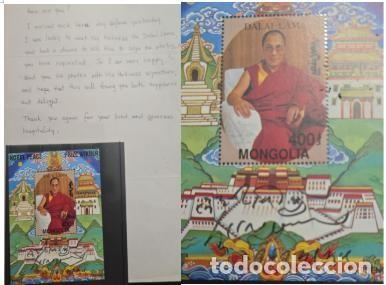 How are you?
I arrived back here day before yesterday.
I am lucky to meet His Holiness the Dalai Lama
and had a chance to ask him to sign the photos
you have requested. So I am very happy
send you the photos with His Holiness signature,
and hope that this will bring you both happiness
and delight.
Thank you again for your kind and generous
hospitality.
NOBEL PEACE PRIZE WINNER
MONGOLIA
DALAI-LAMA
400₮
MONGOLIA
todocoleccion